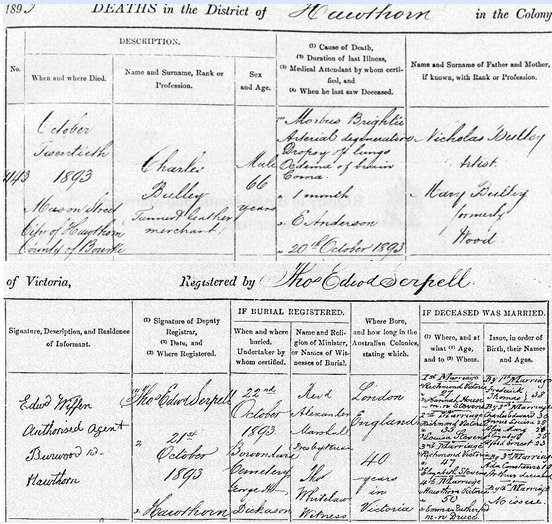 1893 DEATHS in the District of Hawthorn in the Colony
DESCRIPTION.
No.
When and where Died.
Name and Surname, Rank or
Profession.
Sex
and Age.
(1) Cause of Death,
(2) Duration of last Illness,
(3) Medical Attendant by whom certi-
fied, and
(4) When he last saw Deceased.
Name and Surname of Father and Mother,
if known, with Rank or Profession.
October
Twentieth
1893
Mason Street
City of Hawthorn
County of Bourke
Charles
Bulley
Tanner & leather
merchant
Male
66
years
Morbus Brightii
Arterial degeneration
Dropsy of lungs
Oedema of brain
Coma
1 month
E Anderson
20th October 1893
Nicholas Bulley
Artist
Mary Bulley
formerly
Wood
of Victoria, Registered by Thos Edwd Serpell.
Signature, Description, and Residence
of Informant.
(1) Signature of Deputy
Registrar,
(2) Date, and
(3) Where Registered.
IF BURIAL REGISTERED.
When and where
buried.
Undertaker by
whom certified.
Name and Reli-
gion of Minister,
or Names of Wit-
nesses of Burial.
Where Born,
and how long in the
Australian Colonies,
stating which.
IF DECEASED WAS MARRIED.
(1) Where, and at
what (2) Age,
and to (3) Whom.
Issue, in order of
Birth, their Names
and Ages.
Edwd
Authorised Agent
Burwood Rd
Hawthorn
Thos Edwd Serpell
21st
October
1893
Hawthorn
22nd
October
1893
Boroondara
Cemetery
George
Dickason
Revd
Alexander
Marshall
Presbyterian
Thos
Whitelaw
Witness
London
England
40
years
in
Victoria
1st Marriage
Richmond Victoria
27
Hannah House
2nd Marriage
Richmond Victoria
33
Louisa Stevens
3rd Marriage
Richmond Victoria
47
Elizabeth Stevens
4th Marriage
Hawthorn Victoria
50
By 1st Marriage
Frederick
Thomas 38
By 2nd Marriage
Charles
Louisa
Alfred Ernest 23
By 3rd Marriage
Ada Constance
By 4th Marriage
No issue.